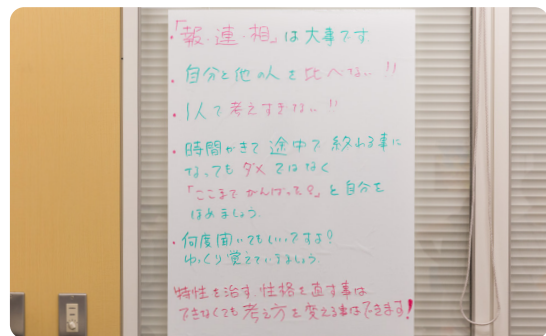 ・「報・連・相」は大事です
・自分と他の人を比べない!!
・1人で考えすぎない!!
・時間がきて途中で終わる事に
なってもダメではなく
「ここまでがんばってる」と自分を
ほめましょう
・何度聞いてもいいですよ?
ゆっくり覚えていきましょう
特性を治す、性格を直す事は
できなくても考え方を変える事はできます!